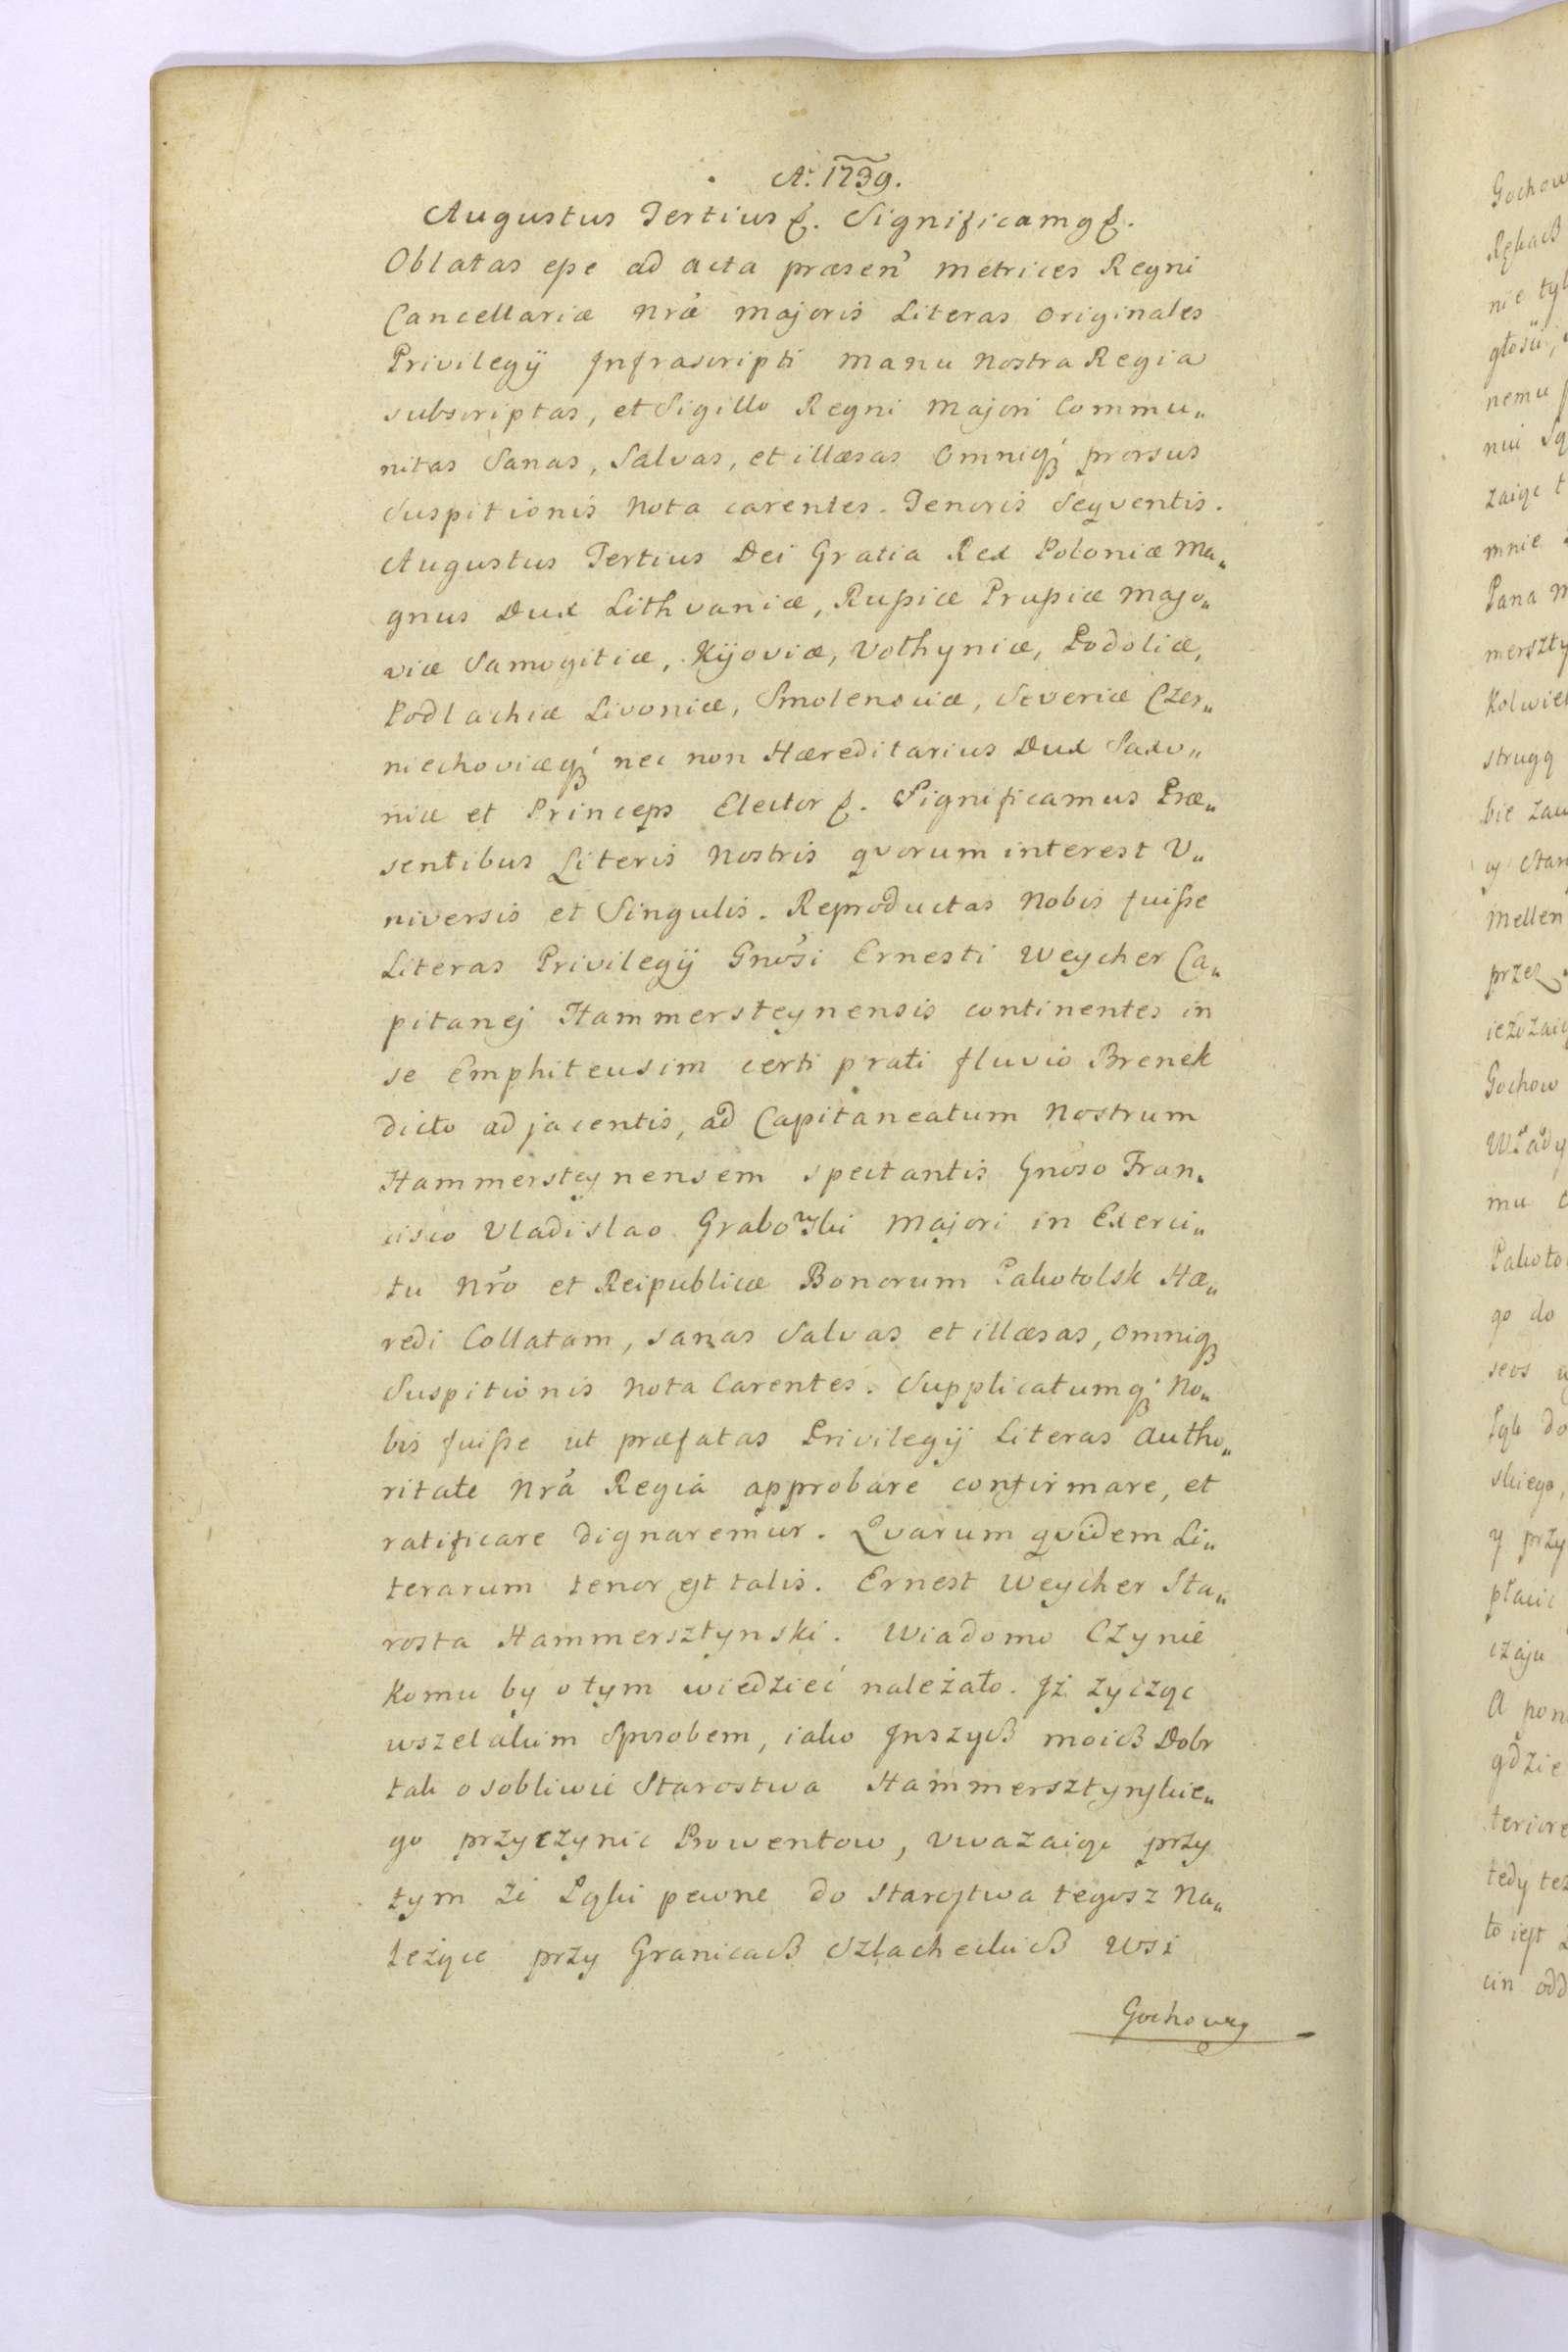 A: 1739.
Augustus Tertius &. Significamq &.
Oblatas eße ad acta præsen' metrices Regni
Cancellariæ nræ majoris Literas originales
Privilegÿ Infrascripti manu nostra Regia
subscriptas, et Sigillo Regni majori Commu„
nitas Sanas, Salvas, et illæsas omniqꝫ prorsus
Suspitionis nota carentes. Tenoris Seqventis.
Augustus Tertius Dei Gratia Rex Poloniæ Ma„
gnus Dux Lithvaniæ, Rußiæ Prußiæ Mazo„
viæ Samogitiæ, Kÿoviæ, Volhyniæ, Podoliæ,
Podlachiæ Livoniæ, Smolensciæ, Severiæ Czer„
niechoviæqꝫ nec non Hæreditarius Dux Saxo„
niæ et Princeps Elector &. Significamus Præ„
sentibus Literis Nostris qvorum interest V„
niversis et Singulis. Reproductas Nobis fuiße
Literas Privilegÿ Gnosi Ernesti Weycher Ca„
pitanej Hammersteynensis continentes in
se Emphiteusim certi prati fluvio Brenek
dicto adjacentis, ad Capitaneatum Nostrum
Hammersteynensem spectantis Gnoso Fran„
cisco Vladislao Grabowski Majori in Exerci„
tu Nro et Reipublicæ Bonorum Pakotolsk Hæ„
redi Collatam, sanas Salvas et illæsas, omniqꝫ
Suspitionis nota Carentes. Supplicatumqꝫ No„
bis fuiße ut præfatas Privilegÿ Literas autho„
ritate Nrâ Regiâ approbare confirmare, et
ratificare dignaremur. Qvarum qvidem Li„
terarum tenor est talis. Ernest Weycher Sta„
rosta Hammersztynski. Wiadomo Czynie
komu by o tym wiedzieć należało. Iż zycząc
wszelakim Sposobem, iako Inszych moich Dobr
tak osobliwie Starostwa Hammersztynskie„
go przyczynic Prowentow, vważaiąc przy
tym że Ląki pewne do starostwa tegosz Na„
leżące przy Granicach Szlacheckich Wsi
Gochowy
Gochow
nie tyl
głosu,
nemu
zaiąc t
mnie
Pana m
merszty
kolwiek
strugą
bie zaw
y Star
Mellen
przez
Gochow
Włady
mu
Pakoto
go do
seos
Ląk do
skiego,
y przy
płacic
czaju
A pon
gdzie
terior
tedy te
to iest
cin odd